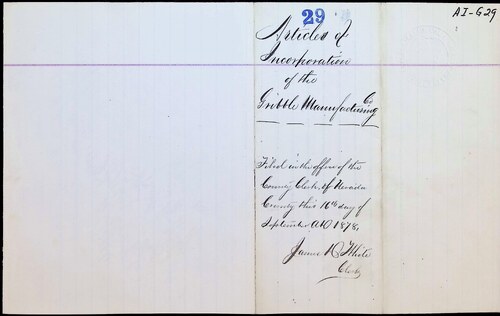 29
AI-G29
Articles of
Incorporation
of the
Gribble Manufacturing Co
Filed in the office of the
County Clerk of Nevada
County this 16th day of
September AD 1878,
James K White
Clerk